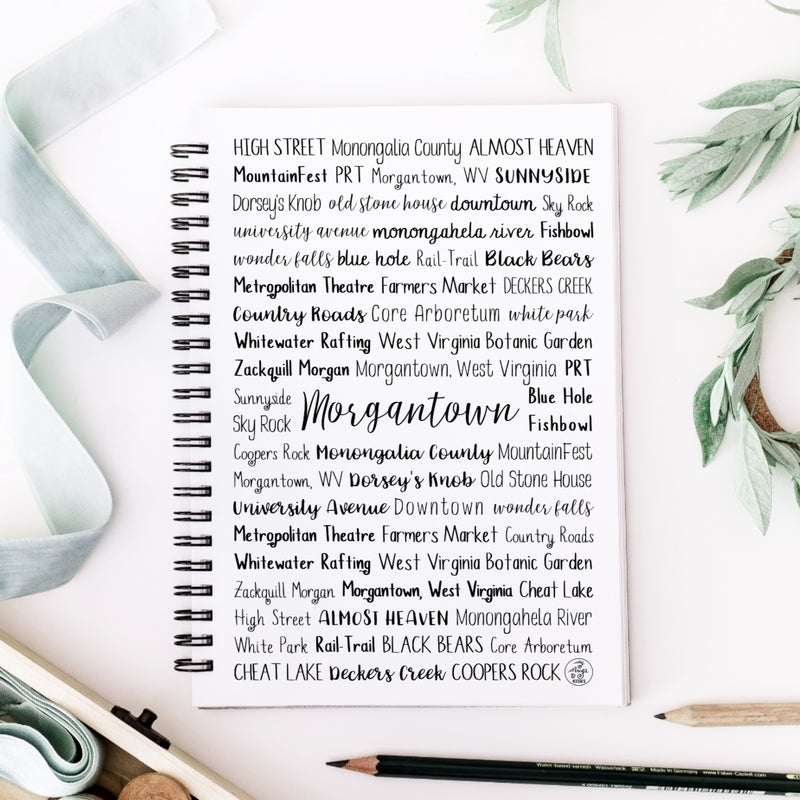 HIGH STREET Monongalia County ALMOST HEAVEN
MountainFest PRT Morgantown, WV SUNNYSIDE
Dorsey's Knob old stone house downtown Sky Rock
university avenue monongahela river Fishbowl
wonder falls blue hole Rail-Trail Black Bears
Metropolitan Theatre Farmers Market DECKERS CREEK
Country Roads Core Arboretum white park
Whitewater Rafting West Virginia Botanic Garden
Zackquill Morgan Morgantown, West Virginia PRT
Sunnyside
Sky Rock
Morgantown
Blue Hole
Fishbowl
Coopers Rock Monongalia County MountainFest
Morgantown, WV Dorsey's Knob Old Stone House
University Avenue Downtown wonder falls
Metropolitan Theatre Farmers Market Country Roads
Whitewater Rafting West Virginia Botanic Garden
Zackquill Morgan Morgantown, West Virginia Cheat Lake
High Street ALMOST HEAVEN Monongahela River
White Park Rail-Trail BLACK BEARS Core Arboretum
CHEAT LAKE Deckers Creek COOPERS ROCK
Made in Germany www.Faber-Castell.com